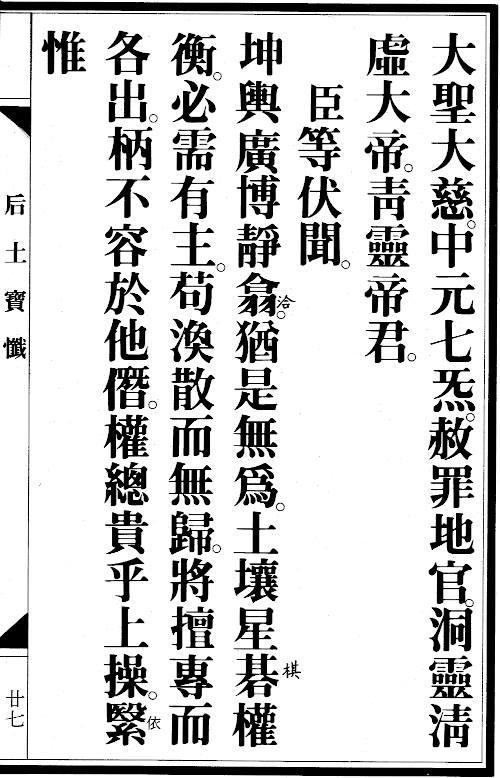 大聖大慈。中元七炁。赦罪地官。洞靈清
虛大帝。青靈帝君。
臣等伏聞。
坤輿廣博靜翕洽。猶是無為。土壤星碁棋權
衡。必需有主。苟渙散而無歸。將擅專而
各出。柄不容於他僭。權總貴乎上操。緊依
惟
后土寶懺
廿七